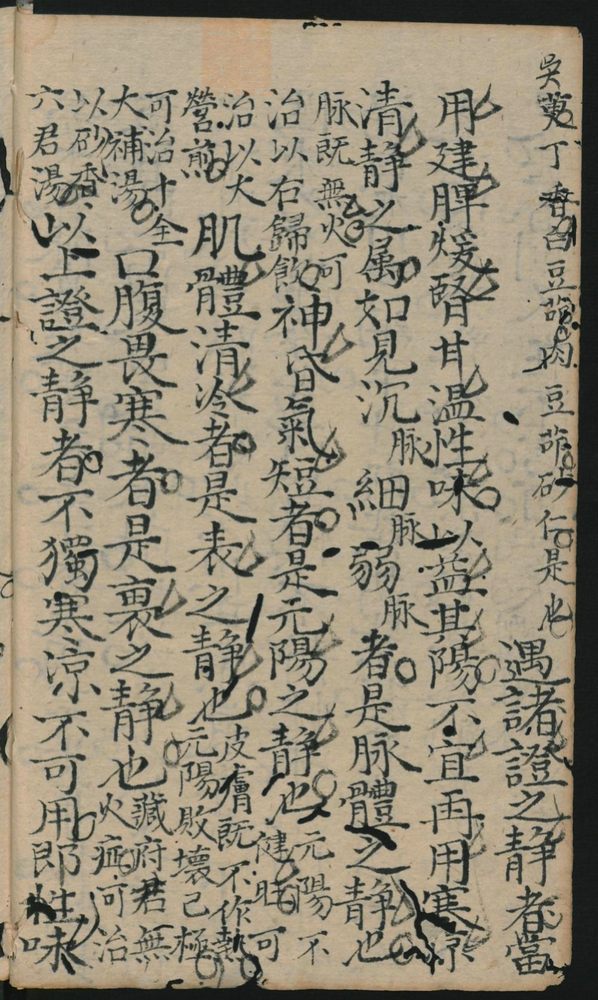 吳茱丁香白豆蔻肉豆蔻砂仁是也
遇諸證之静者當
用建脾煖腎甘溫性味以益其陽不宜再用寒凉
清静之属如見沉脉細脉弱脉者是脉體之静也
脉既無火可
治以右歸飲
神昏氣短者是元陽之静也
元陽不健旺可
治以大營煎
肌體清冷者是表之静也
皮膚既不作熱
元陽敗壞已極
可治十全大補湯
口腹畏寒者是裏之静也
臟府君無火症可治
以砂香六君湯
以上證之静者不獨寒凉不可用即性味